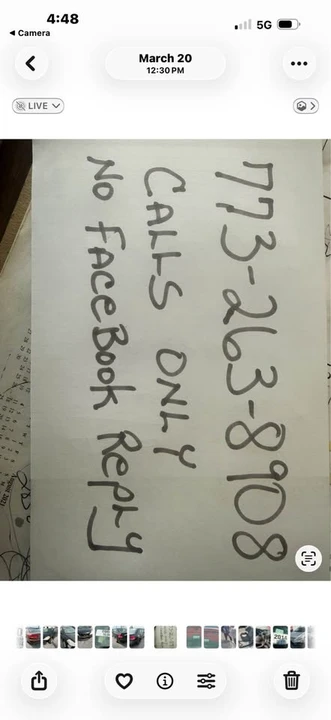 4:48
5G
Camera
March 20
12:30 PM
LIVE
773-263-8908
CALLS ONLY
No FACEBook Reply